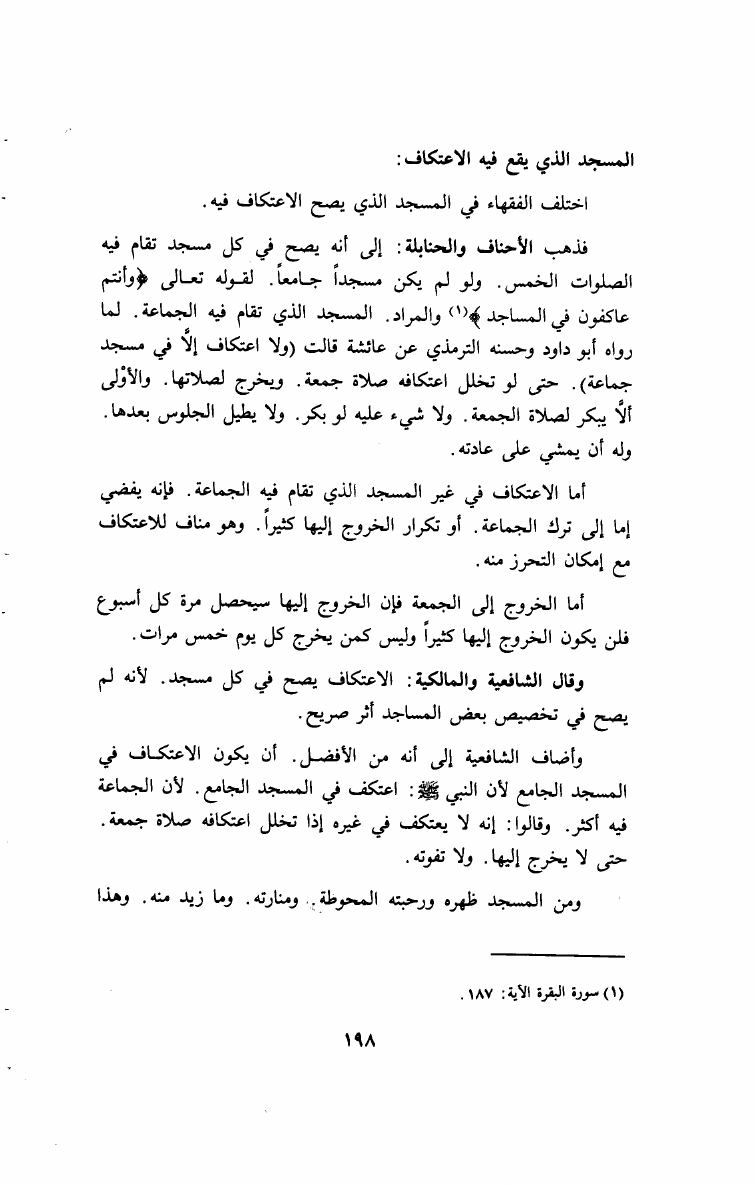 المسجد الذي يقع فيه الاعتكاف:
اختلف الفقهاء في المسجد الذي يصح الاعتكاف فيه.
فذهب الأحناف والحنابلة: إلى أنه يصح في كل مسجد تقام فيه
الصلوات الخمس. ولو لم يكن مسجداً جـامعاً. لقـوله تعـالى ﴿وأنتم
عاكفون في المساجد﴾(١) والمراد. المسجد الذي تقام فيه الجماعة. لما
رواه أبو داود وحسنه الترمذي عن عائشة قالت (ولا اعتكاف إلاَّ في مسجد
جماعة). حتى لو تخلل اعتكافه صلاة جمعة. ويخرج لصلاتها. والأوْلى
ألاَّ يبكر لصلاة الجمعة. ولا شيء عليه لو بكر. ولا يطيل الجلوس بعدها.
وله أن يمشي على عادته.
أما الاعتكاف في غير المسجد الذي تقام فيه الجماعة. فإنه يفضي
إما إلى ترك الجماعة. أو تكرار الخروج إليها كثيراً. وهو مناف للاعتكاف
مع إمكان التحرز منه.
أما الخروج إلى الجمعة فإن الخروج إليها سيحصل مرة كل أسبوع
فلن يكون الخروج إليها كثيراً وليس كمن يخرج كل يوم خمس مرات.
وقال الشافعية والمالكية: الاعتكاف يصح في كل مسجد. لأنه لم
يصح في تخصيص بعض المساجد أثر صريح.
وأضاف الشافعية إلى أنه من الأفضـل. أن يكون الاعتكـاف في
المسجد الجامع لأن النبي ﷺ: اعتكف في المسجد الجامع. لأن الجماعة
فيه أكثر. وقالوا: إنه لا يعتكف في غيره إذا تخلل اعتكافه صلاة جمعة.
حتى لا يخرج إليها. ولا تفوته.
ومن المسجد ظهره ورحبته المحوطة. ومنارته. وما زيد منه. وهذا
(١) سورة البقرة الآية: ١٨٧.
١٩٨